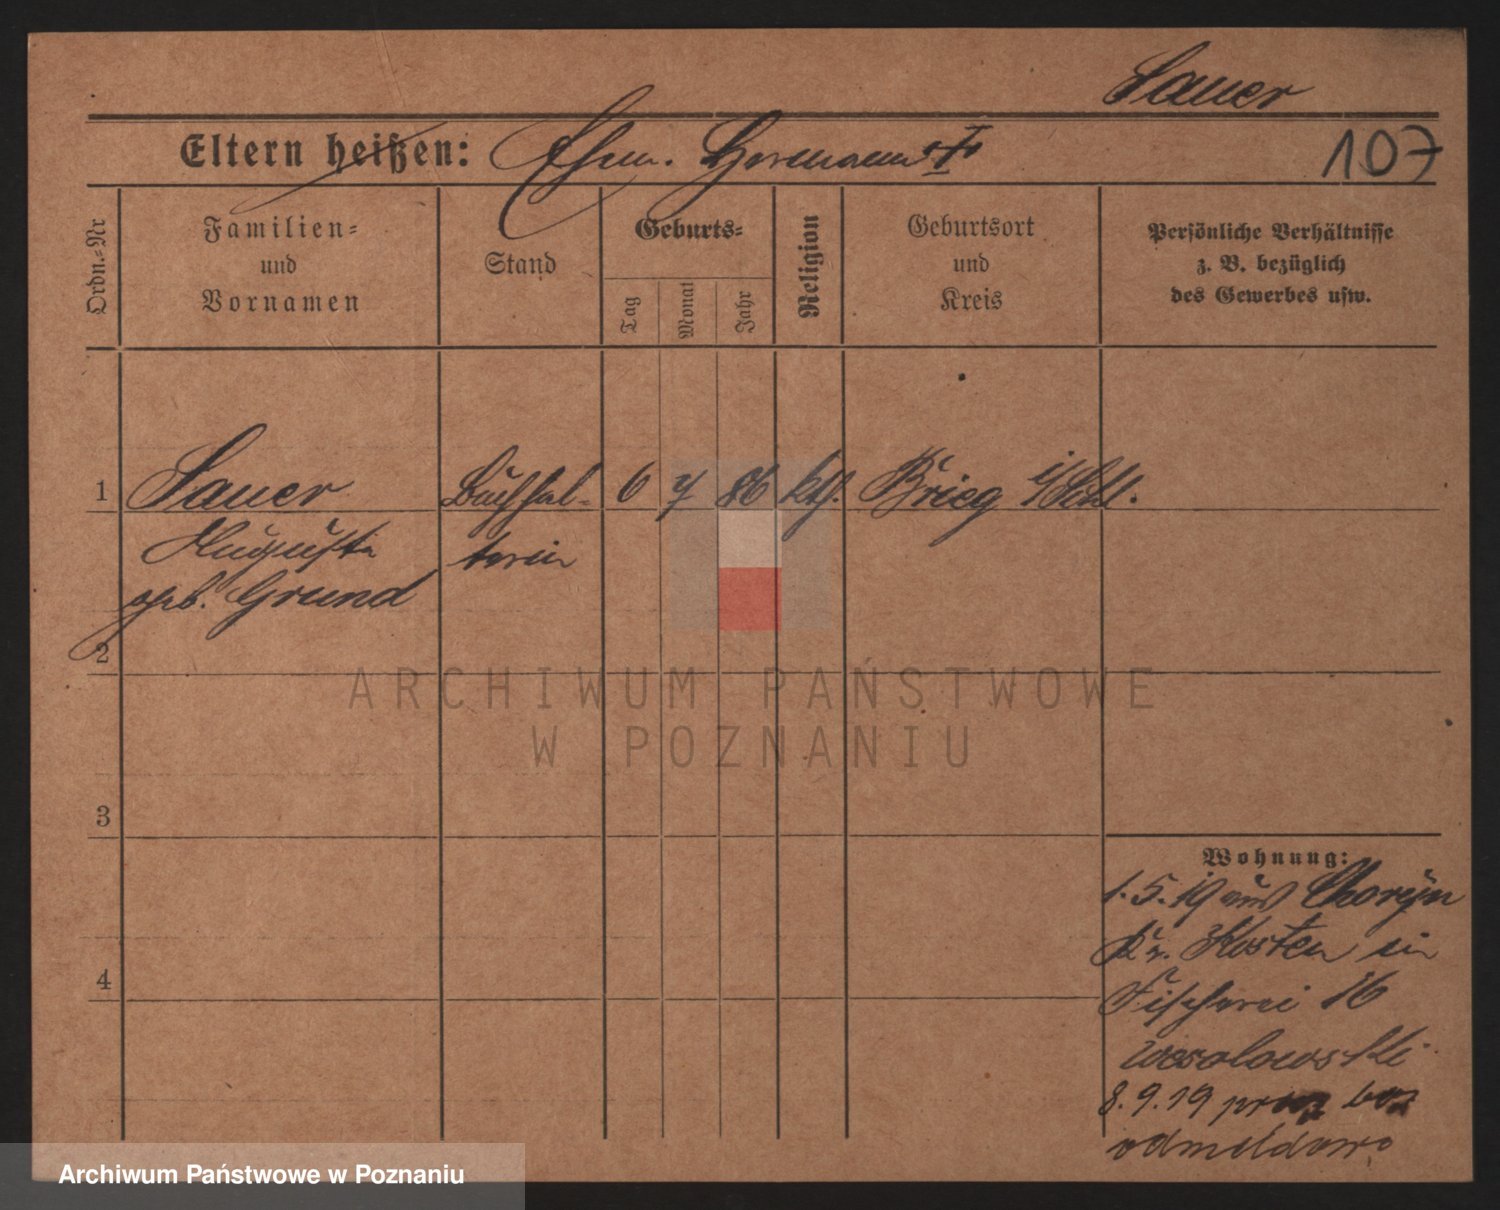 Sauer
Eltern heißen: Ehem. Hermann †
107
Ordn.-Nr
Familien-
und
Vornamen
Stand
Geburts-
Tag
Monat
Jahr
Religion
Geburtsort
und
Kreis
Persönliche Verhältnisse
z. B. bezüglich
des Gewerbes usw.
1 Sauer Buchhal- 6 7 86 kth. Brieg i/Schl.
Auguste terin
geb. Grund
2
ARCHIWUM PAŃSTWOWE
W POZNANIU
3
Wohnung:
1.5.19 aus Choryn
Kr. Kosten in
4
Fischerei 16
Wesolowski
8.9.19 bez
odmeldow.
Archiwum Państwowe w Poznaniu